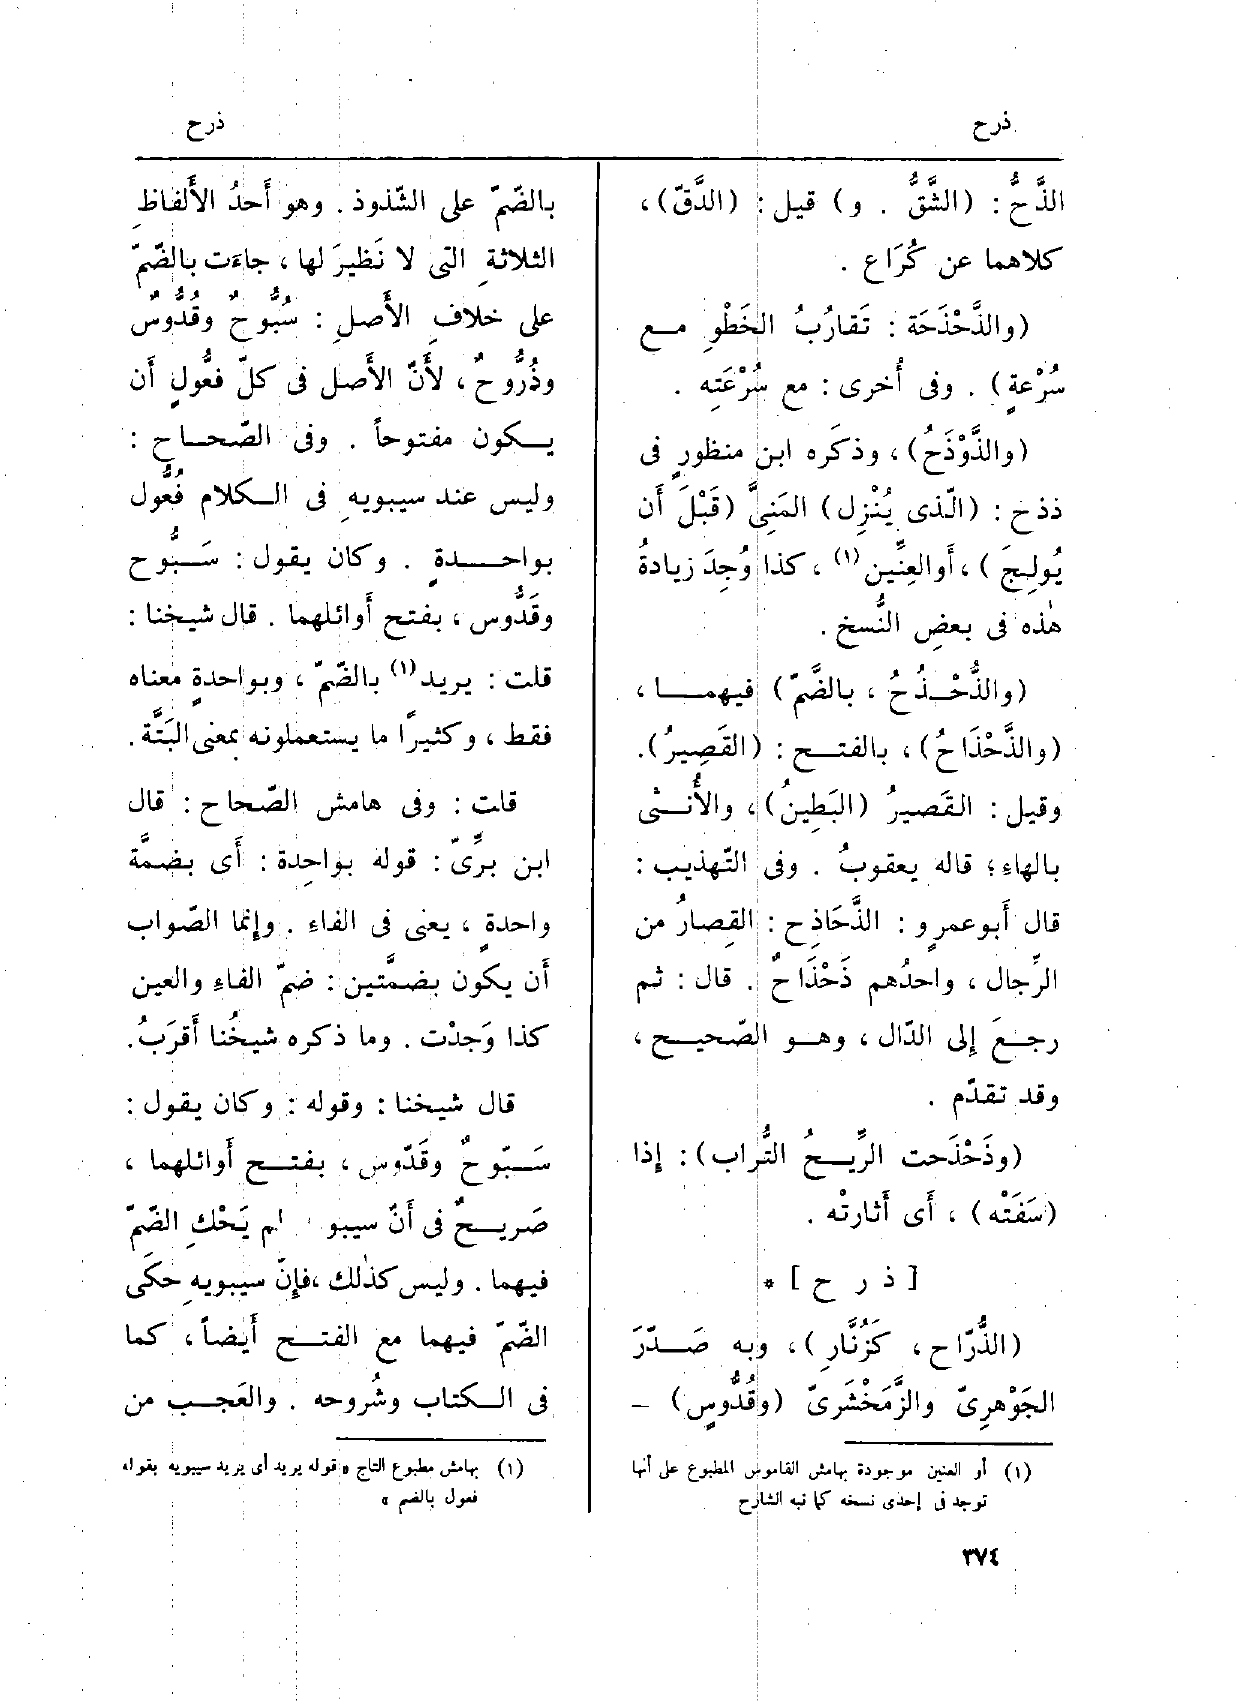 ذرح
ذرح
الذَّحُّ : (الشَّقُّ . و) قيل : (الدَّقّ) ،
كلاهما عن كُرَاع .
(والذَّحْذَحَة : تَقارُبُ الخَطْوِ مع
سُرْعةٍ) . وفى أُخرى : مع سُرْعَتِه .
(والذَّوْذَحُ) ، وذكَره ابن منظورٍ فى
ذذح : (الّذى يُنْزِل) المَنِىَّ (قَبْلَ أن
يُولِجَ ) ، أوالعِنِّين (١) ، كذا وُجِدَ زيادةُ
هٰذه فى بعضِ النُّسخ .
(والذُّحْذُحُ ، بالضَّمّ) فيهما ،
(والذَّحْذَاحُ) ، بالفتح : (القَصِيرُ).
وقيل : القَصيرُ (البَطِينُ) ، والأُنثى
بالهاءِ؛ قاله يعقوبُ . وفى التّهذيب :
قال أَبوعمرٍو : الذَّحَاذِح : القِصارُ من
الرِّجال ، واحدُهم ذَحْذَاحٌ . قال : ثم
رجعَ إلى الدّال ، وهو الصّحيح ،
وقد تقدّم .
(وذَحْذَحت الرِّيحُ التُّراب) : إذا
(سَفَتْه) ، أى أثارتْه .
[ ذ ر ح ] *
(الذُّرّاح ، كَزُنَّارٍ) ، وبه صَدّرَ
الجَوْهرِىّ والزَّمَخْشَرىّ (وقُدُّوسٍ) –
(١) أو العنين موجودة بهامش القاموس المطبوع على أنها
توجد فى إحدى نسخه كما نبه الشارح
بالضّمّ على الشّذوذ . وهو أَحدُ الأَلفاظِ
الثلاثةِ التى لا نَظيرَ لها ، جاءَت بالضّمّ
على خلافِ الأَصلِ : سُبُّوحٌ وقُدُّوسٌ
وذُرُّوحٌ ، لأَنّ الأَصل فى كلّ فعُّولٍ أن
يكون مفتوحاً . وفى الصّحاح :
وليس عند سيبويهِ فى الكلام فُعُّول
بواحدةٍ . وكان يقول : سَبُّوح
وقَدُّوس ، بفتح أَوائلهما . قال شيخنا :
قلت : يريد (١) بالضّمّ ، وبواحدةٍ معناه
فقط ، وكثيرًا ما يستعملونه بمعنى البَتَّة .
قلت : وفى هامش الصّحاح : قال
ابن برِّىّ : قوله بواحِدة : أَى بضمَّة
واحدةٍ ، يعنى فى الفاء . وإنما الصّواب
أن يكون بضمَّتين : ضمّ الفاءِ والعين
كذا وَجدْت . وما ذكره شيخُنا أَقرَبُ.
قال شيخنا : وقوله : وكان يقول :
سَبّوحٌ وقَدّوس ، بفتح أَوائلهما ،
صَريحٌ فى أَنّ سيبو لم يَحْكِ الضّمّ
فيهما . وليس كذٰلك ،فإِنّ سيبويهِ حكَى
الضّمّ فيهما مع الفتح أَيضاً ، كما
فى الكتاب وشُروحه . والعَجب من
(١) بهامش مطبوع التاج « قوله يريد أى يريد سيبويه بقوله
فعول بالضم »
٣٧٤